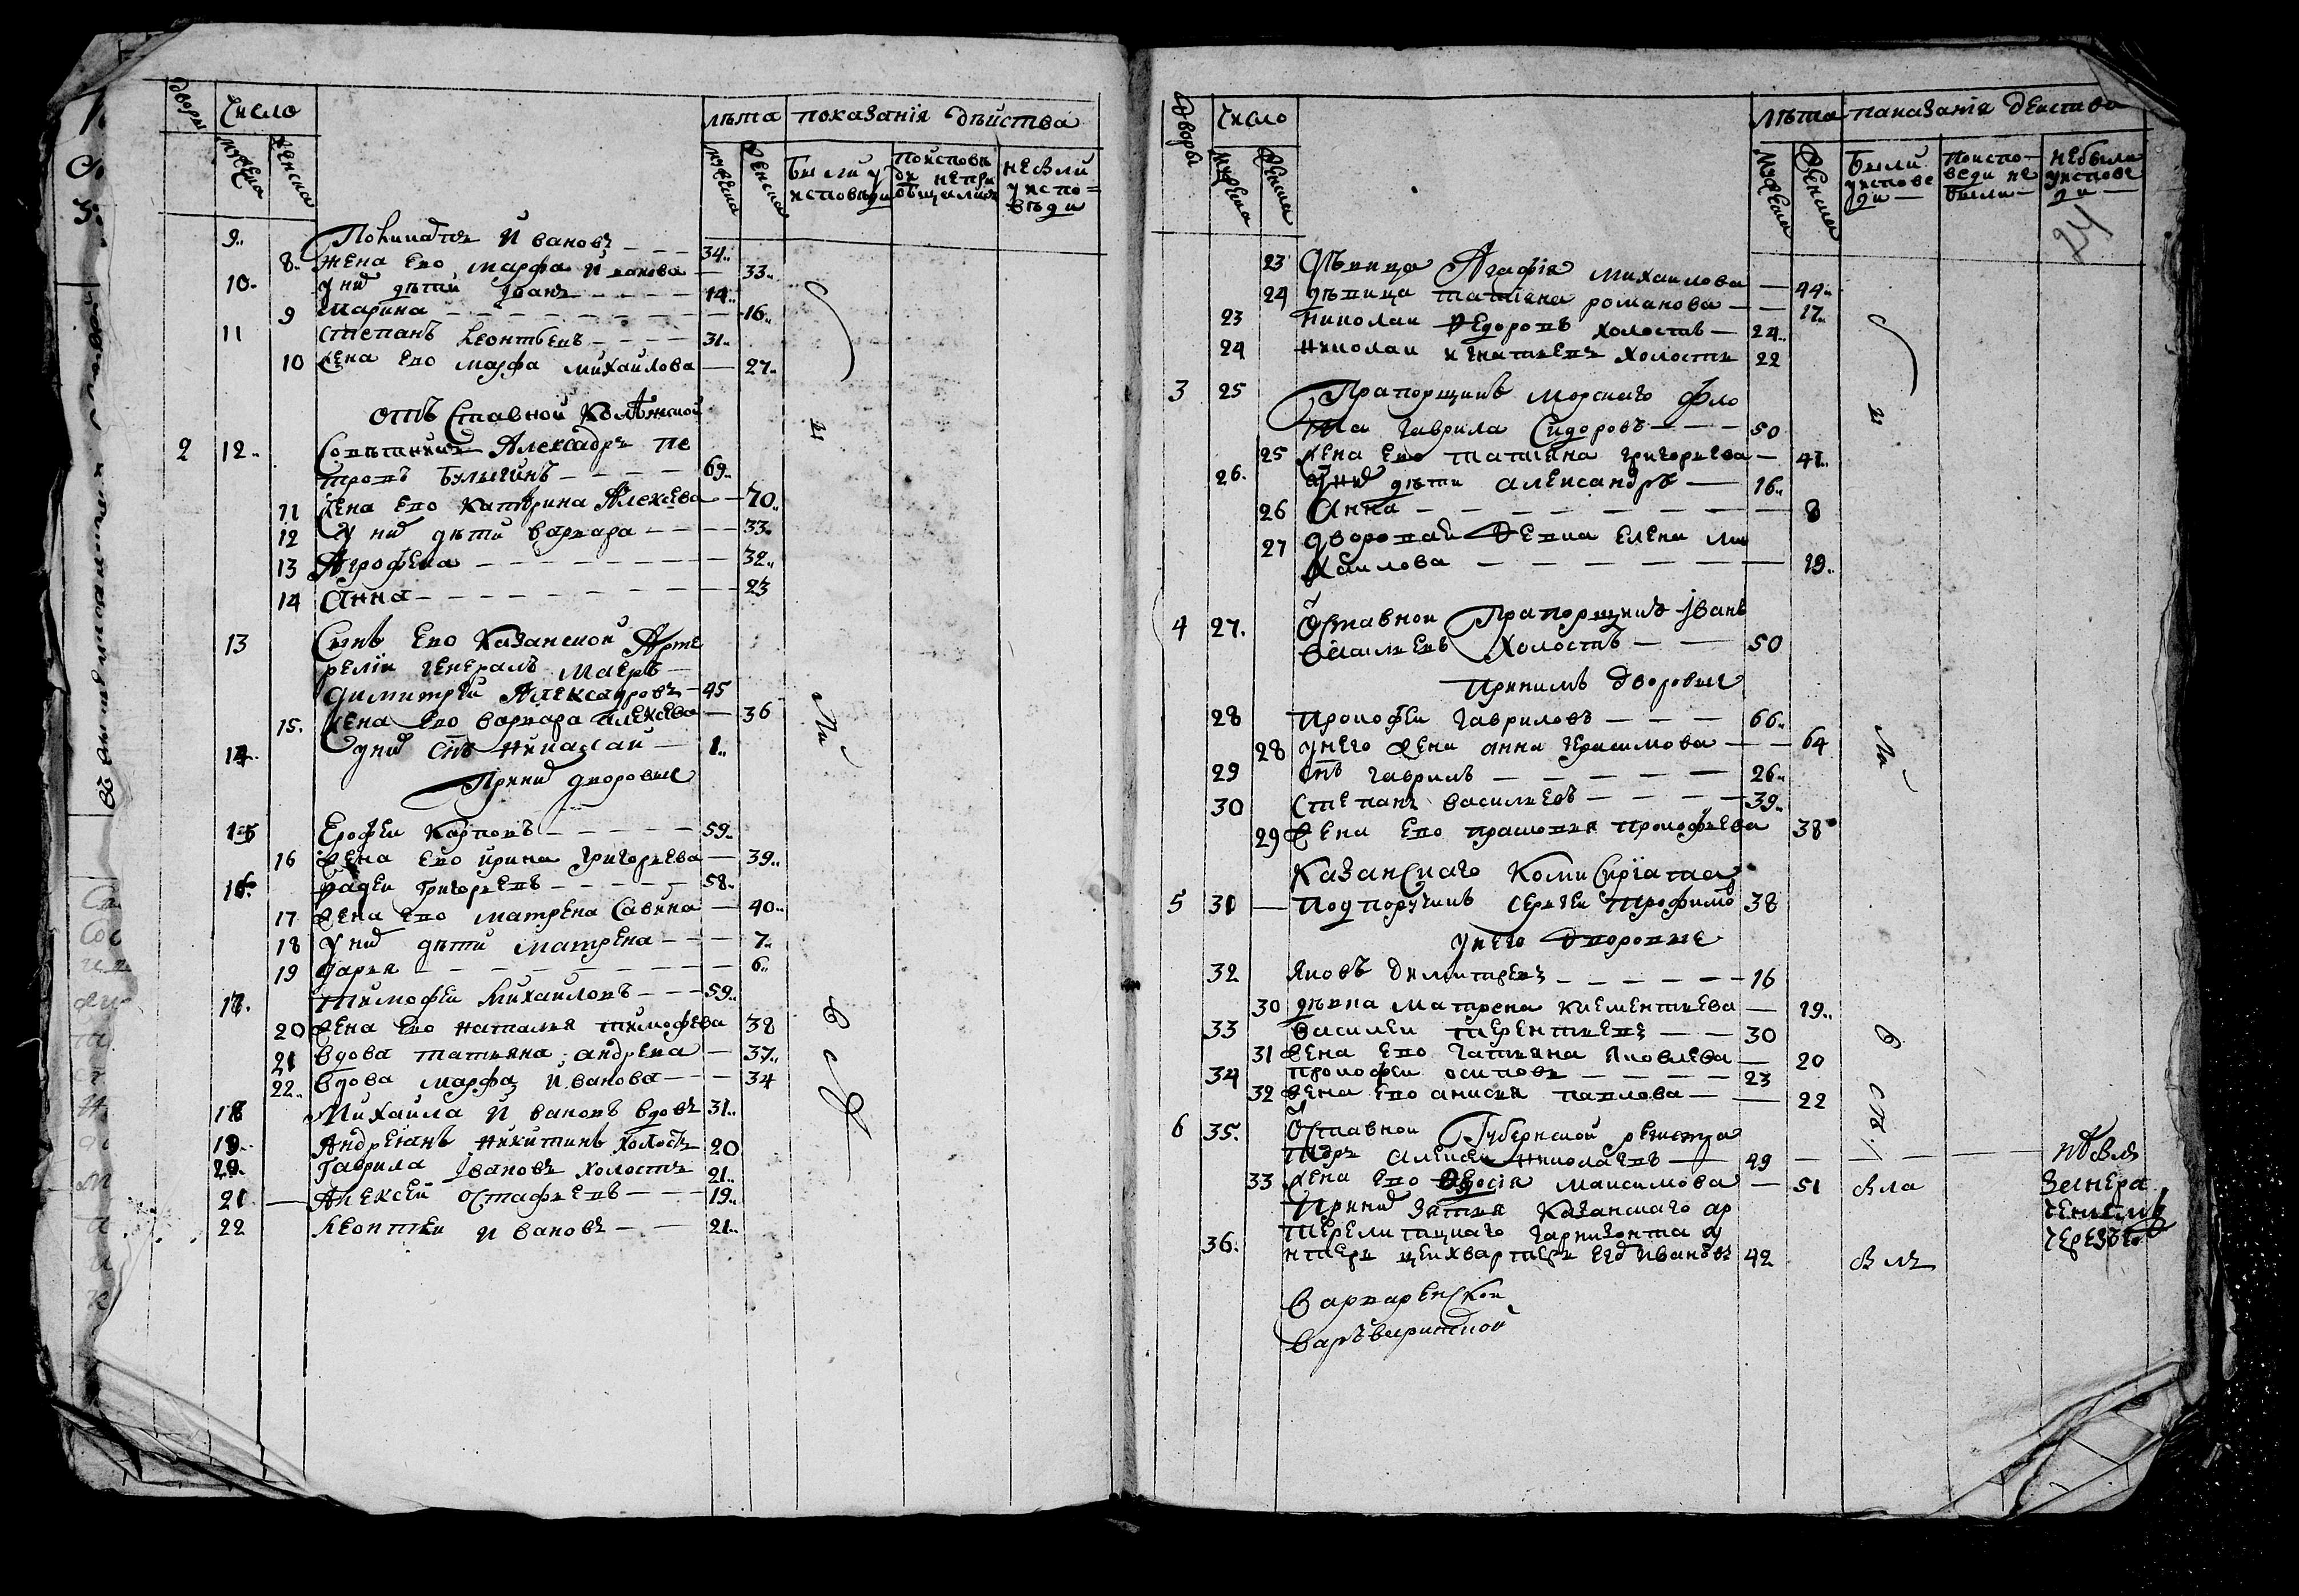 дворы Число лѣта показанія дѣйства
мужеска женска мужеска женска были у исповѣди поисповѣди непріобщились небыли уисповѣди
9 Ивановъ 34
8 жена ево марфа Иванова 33
10 у них дѣти Іванъ 14
9 Марина 16
11 Степанъ Леонтьевъ 31
10 жена ево марфа михаилова 27
отъ Ставной
2 12 Совѣтникъ Александръ пе
тровъ 69
11 жена ево катерина Алекѣева 70
12 У них дѣти варвара 33
13 Агрофена 32
14 Анна 23
13 Сынъ ево Казанской Арте
релiи генералъ маеръ
Димитрей Александровъ 45
15 жена ево варвара 36
14 у них снъ николай 1
При них дворовые
15 Ерофеи Карповъ 59
16 жена ево ирина григорьева 39
16 фадеи григорьевъ 58
17 жена ево матрена Савина 40
18 у них дѣти матрена 7
19 дарья 6
17 тимофеи Михаиловъ 59
20 жена ево наталья тимофеева 38
21 вдова татьяна андреева 37
22 вдова марфа Иванова 34
18 Михаила Ивановъ вдовъ 31
19 Андреянъ никитинъ холостъ 20
20 Гаврила Івановъ холостъ 21
21 Алексей остафьевъ 19
22 леонтеи Ивановъ 21
дворы Число лѣта паказанія деиства
мужеска женска мужеска женска были уисповеди поисповеди не были небыли уисповеди
24
23 Дѣвица Агафія михаилова 44
24 дѣвица татіяна романова 17
23 николаи федоровъ холостъ 24
24 николаи игнатьевъ холостъ 22
3 25 Прапорщикъ морскаго фло
та гаврила Сидоровъ 50
25 жена ево татіяна григорьева 41
26 у них дѣти александръ 16
26 Анна 8
27 дворовая девка елена ми
хаилова 19
4 27 Ѿставнои Прапорщикъ Іванъ
васильевъ Холостъ 50
принимъ дворовые
28 прокофеи гавриловъ 66
28 унего жена анна герасимова 64
29 снъ гаврилъ 26
30 степанъ васильевъ 39
29 жена ево прасковья прокофьева 38
Казанскаго Комисиріата
5 31 подпорутчикъ сергеи трофимовъ 38
унего дворовые
32 яковъ димитревъ 16
30 дѣвка матрена климентьева 19
33 василеи терентьевъ 30
31 жена ево татьяна яковлева 20
34 прокофеи осиповъ 23
32 жена ево анисья павлова 22
6 35 Ѿставнои Губернской регистра
торъ алексеи николаевъ 49
33 жена ево Ѳедосія максимова 51 была
При них зятья Казанскаго ар
терелитцкаго гарнизонта у
36 нтеръ цеихвартеръ Ивановъ 42 былъ
варваренскои